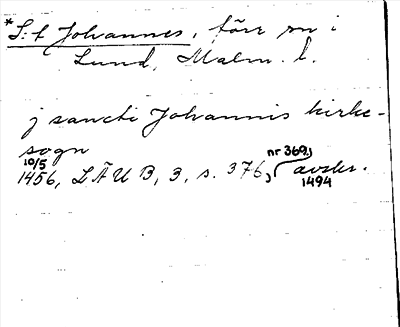 *S:t Johannes, förr sn i
Lund, Malm. l.
j sancti Johannis kirke-
sogn
10/5
1456, LÄUB, 3, s. 376, nr 369, avskr.
1494